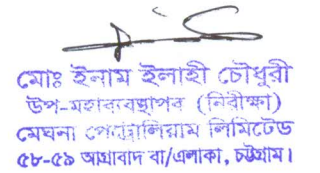 মোঃ ইনাম ইলাহী চৌধুরী
উপ-মহাব্যবস্থাপক (নিরীক্ষা)
মেঘনা পেট্রোলিয়াম লিমিটেড
৫৮-৫৯ আগ্রাবাদ বা/এলাকা, চট্টগ্রাম।